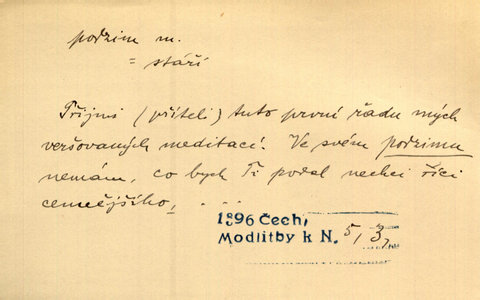 podzim m.
= stáří
Přijmi (příteli) tuto první řadu mých
veršovaných meditací. Ve svém podzimu
nemám, co bych Ti podal nechci říci
cennějšího, . . . .
1896 Čech,
Modlitby k N. 5, 3,